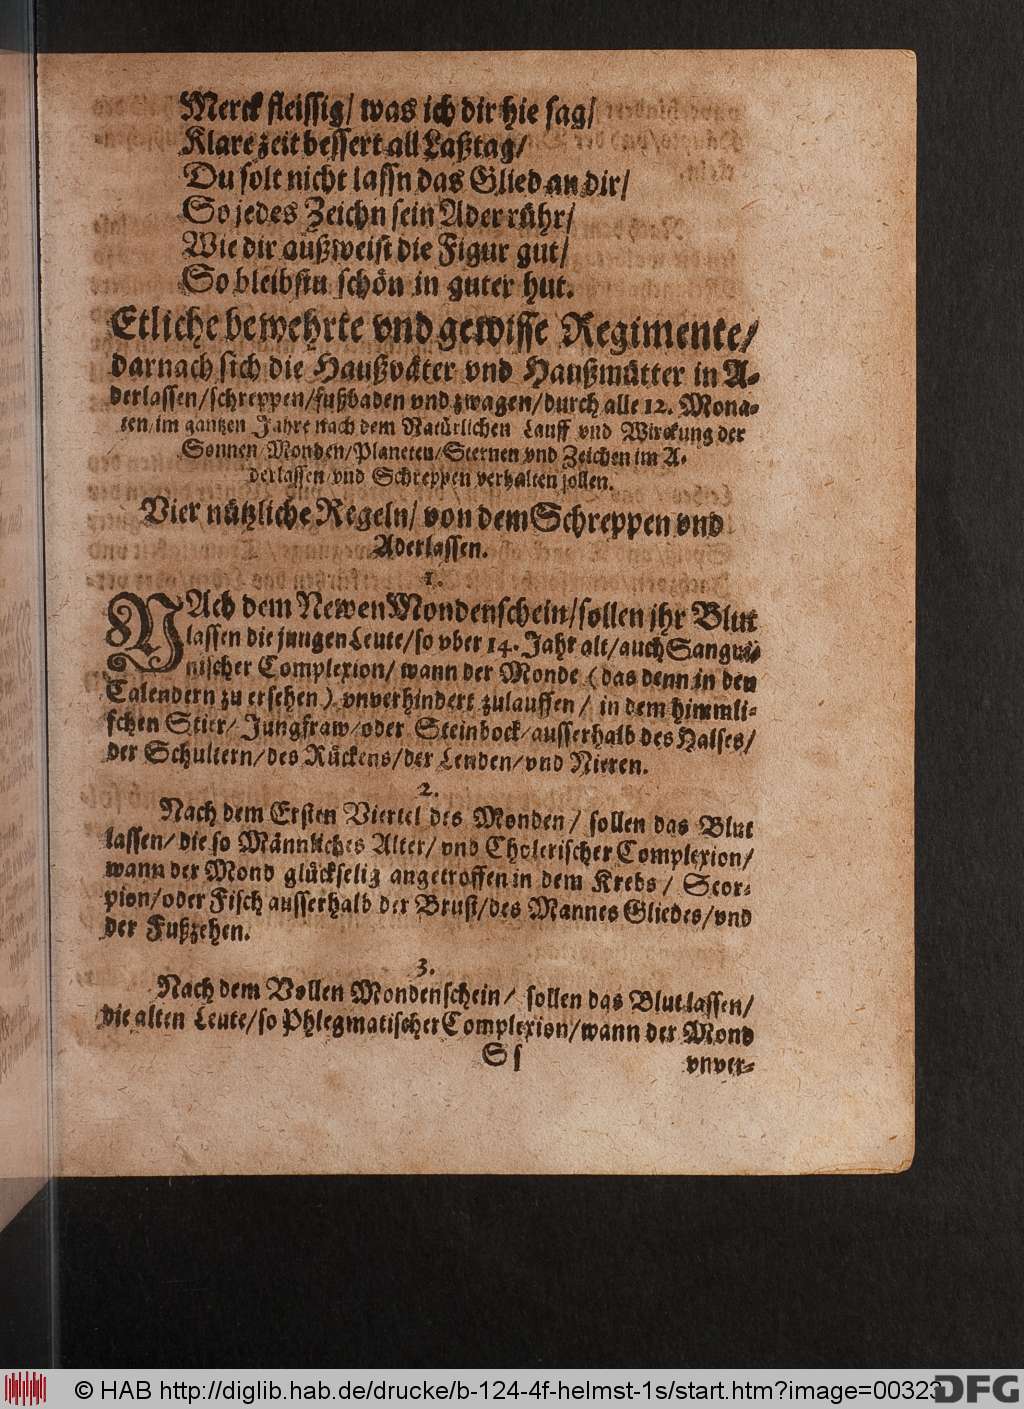 Merck fleissig/ was ich dir hie sag/
Klare zeit bessert all Laßtag/
Du solt nicht lassn das Glied an dir/
So jedes Zeichn sein Ader rühr/
Wie dir außweist die Figur gut/
So bleibstu schön in guter hut.
Etliche bewehrte vnd gewisse Regimente/
darnach sich die Haußväter vnd Haußmütter in A-
derlassen/schreppen/fußbaden vnd zwagen/durch alle 12. Mona-
ten/im gantzen Jahre nach dem Natürlichen Lauff vnd Wirckung der
Sonnen/Monden/Planeten/Sternen vnd Zeichen im A-
derlassen/vnd Schreppen verhalten sollen.
Vier nützliche Regeln/ von dem Schreppen vnd
Aderlassen.
1.
NAch dem Newen Mondenschein/sollen jhr Blut
lassen die jungen Leute/so vber 14. Jahr alt/auch Sangui-
nischer Complexion/ wann der Monde (das denn in den
Calendern zu ersehen) vnverhindert zulauffen/ in dem himmli-
schen Stier/ Jungfraw/oder Steinbock/ausserhalb des Halses/
der Schultern/des Rückens/der Lenden/vnd Nieren.
2.
Nach dem Ersten Viertel des Monden/ sollen das Blut
lassen/ die so Männliches Alter/ vnd Cholerischer Complexion/
wann der Mond glückselig angetroffen in dem Krebs/ Scor-
pion/oder Fisch ausserhalb der Brust/des Mannes Gliedes/vnd
der Fußzehen.
3.
Nach dem Vollen Mondenschein/ sollen das Blut lassen/
die alten Leute/so Phlegmatischer Complexion/wann der Mond
Ss
vnver-
© HAB http://diglib.hab.de/drucke/b-124-4f-helmst-1s/start.htm?image=00323
DFG